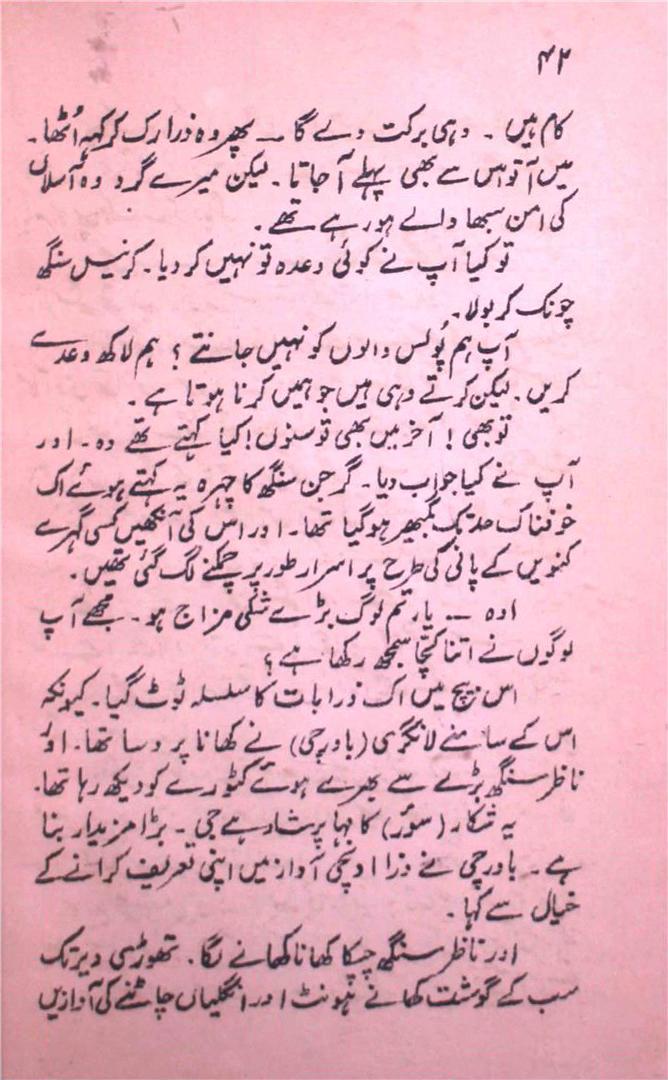 ۴۲
کام ہیں ۔ وہی برکت دے گا ــ پھر وہ ذرا رک کر کہہ اُٹھا۔
میں آ تو اس سے بھی پہلے آ جاتا ۔ لیکن میرے گرد وہ آسلاں
کی امن سبھا والے ہو رہے تھے ۔
تو کیا آپ نے کوئی وعدہ تو نہیں کر دیا ۔ کرنیل سنگھ
چونک کر بولا۔
آپ ہم پُولس والوں کو نہیں جانتے ؟ ہم لاکھ وعدے
کریں ۔ لیکن کرتے وہی ہیں جو ہمیں کرنا ہوتا ہے ۔
تو بھی ! آخر میں بھی تو سنوں ! کیا کہتے تھے وہ ۔ اور
آپ نے کیا جواب دیا ۔ گرجن سنگھ کا چہرہ یہ کہتے ہوئے اک
خوفناک حد تک گمبھیر ہو گیا تھا ۔ اور اس کی آنکھیں کسی گہرے
کنویں کے پانی کی طرح پر اسرار طور پر چمکنے لگ گئی تھیں ۔
اوہ ــ یار تم لوگ بڑے شکی مزاج ہو ۔ مجھے آپ
لوگوں نے اتنا کچّا سمجھ رکھا ہے ؟
اس بیچ میں اک ذرا بات کا سلسلہ ٹوٹ گیا ۔ کیونکہ
اس کے سامنے لانگری (باورچی) نے کھانا پروسا تھا ۔ اور
ناظر سنگھ بڑے سے بھرے ہوئے کٹورے کو دیکھ رہا تھا۔
یہ شکار (سوٗر) کا مہا پرشاد ہے جی ۔ بڑا مزیدار بنا
ہے ۔ باورچی نے ذرا اونچی آواز میں اپنی تعریف کرانے کے
خیال سے کہا ۔
اور ناظر سنگھ چپکا کھانا کھانے لگا ۔ تھوڑی دیر تک
سب کے گوشت کھانے ہونٹ اور انگلیاں چاٹنے کی آوازیں